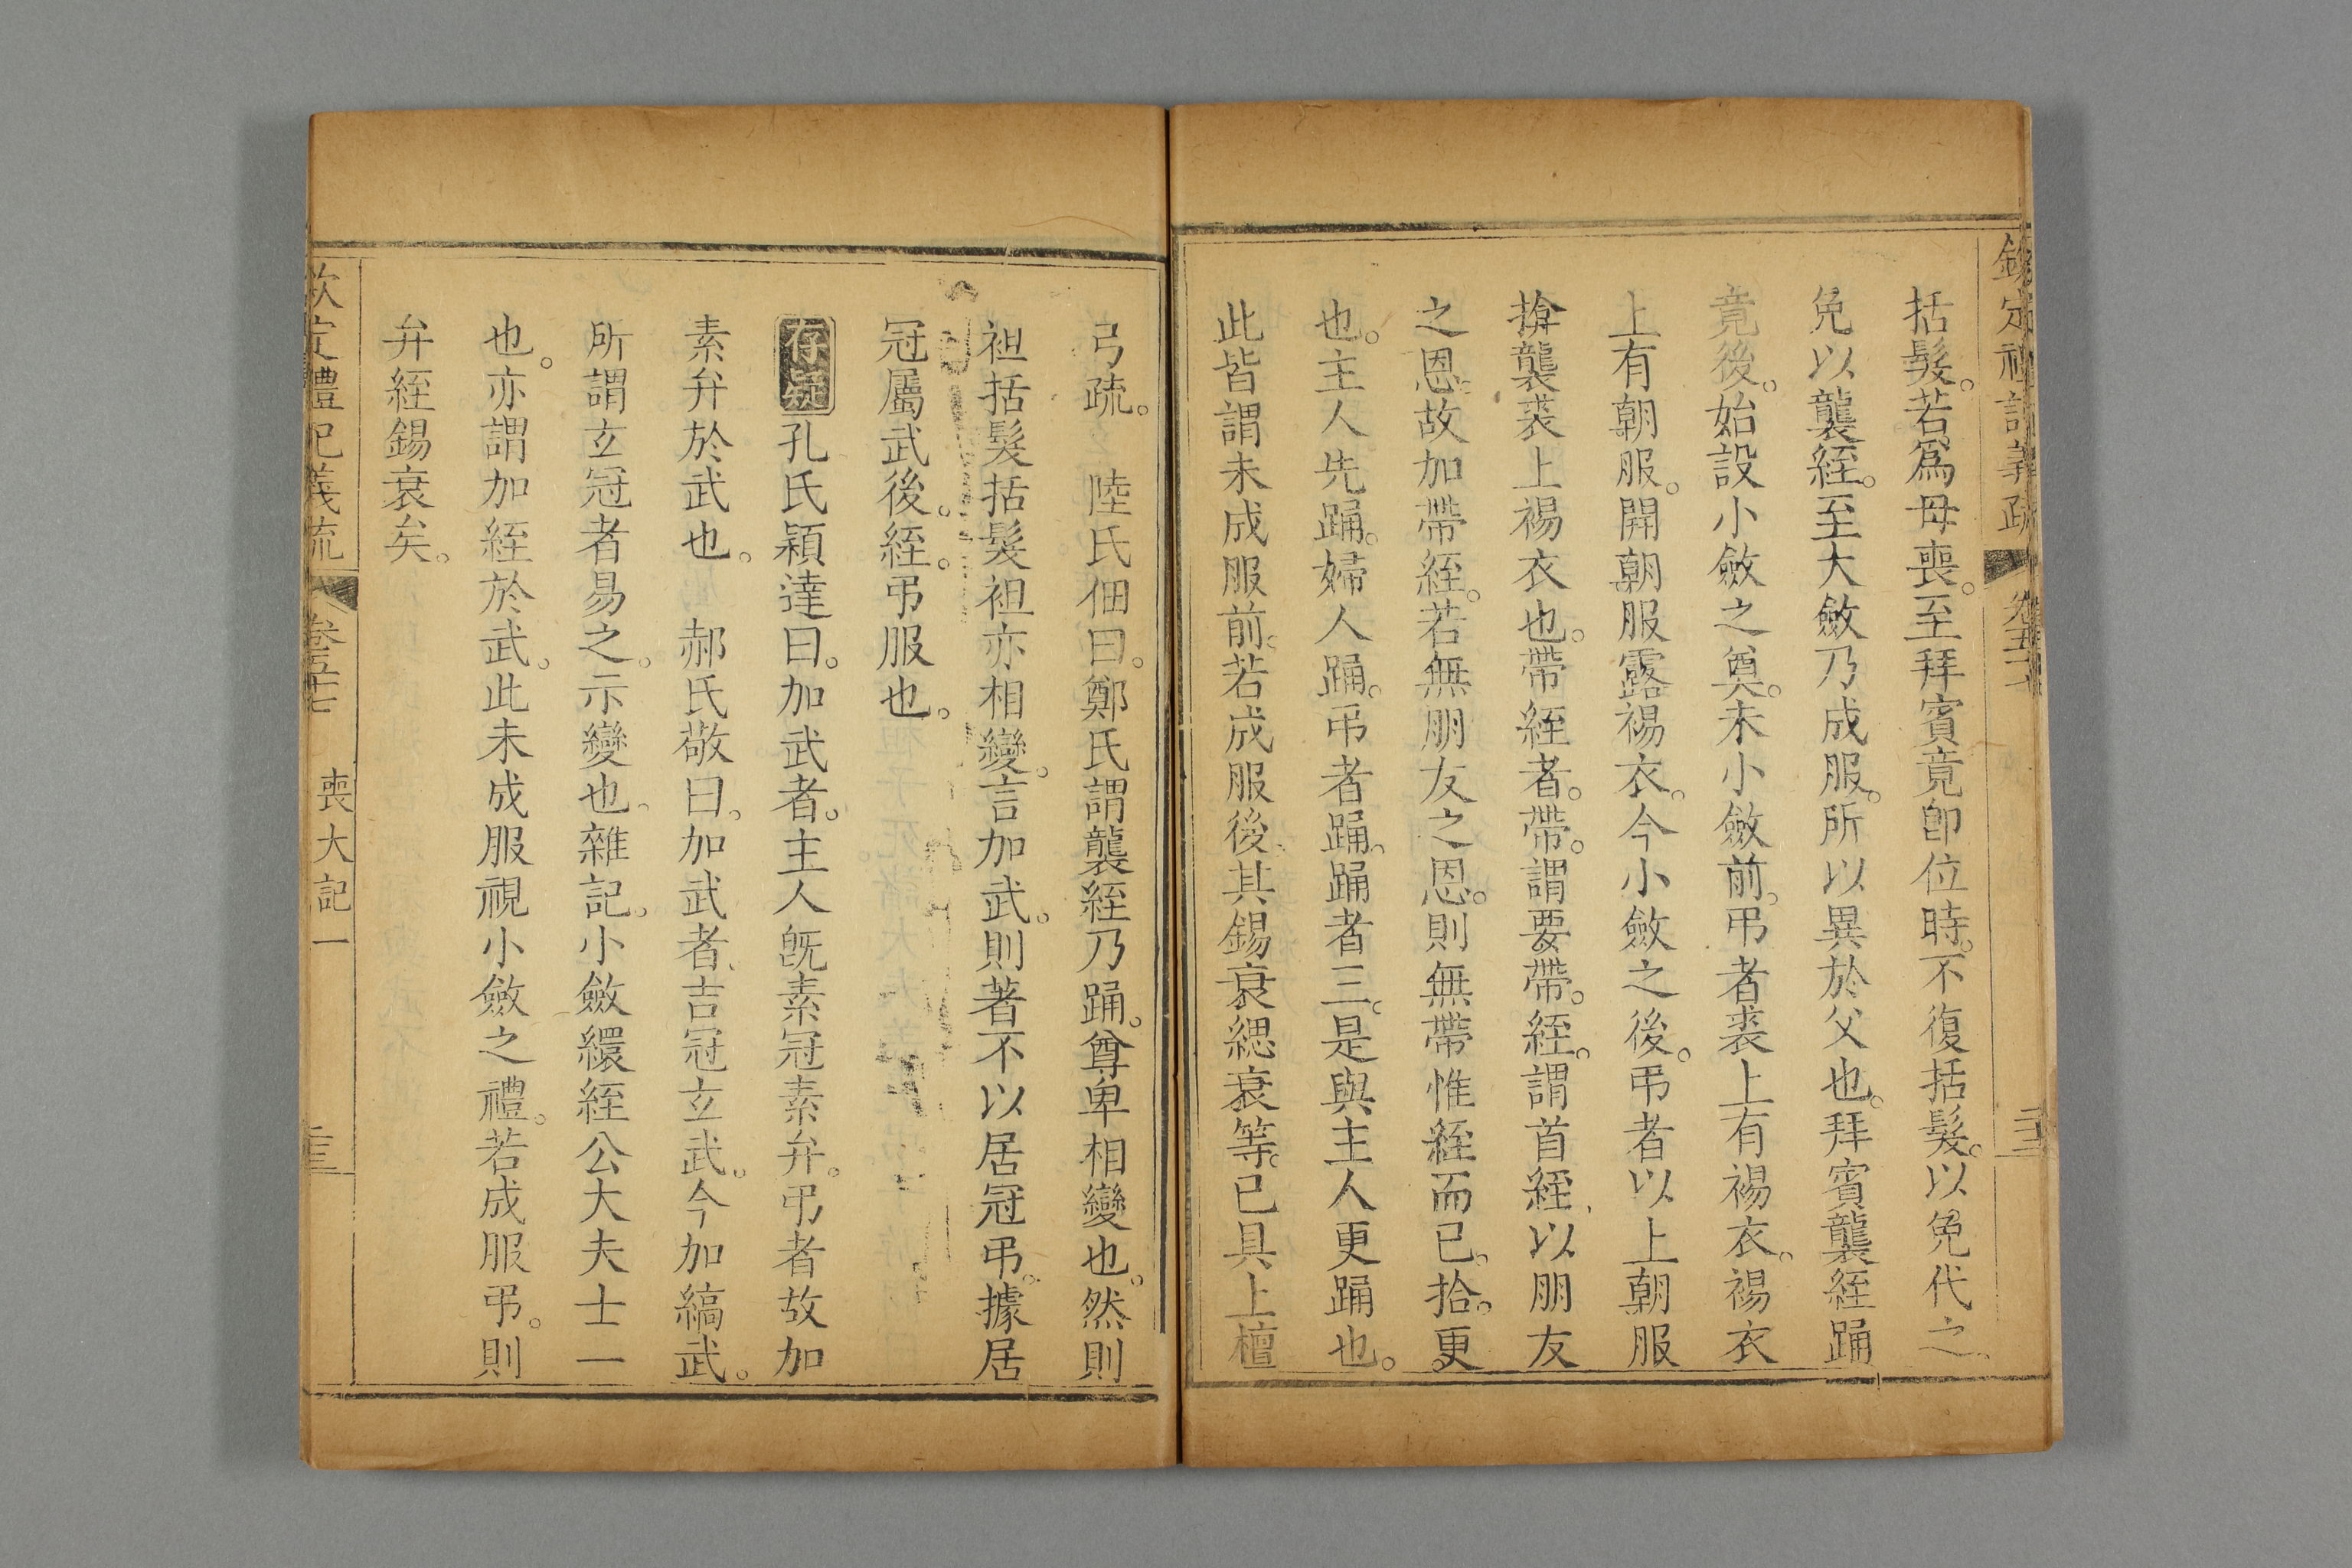 欽定禮記義疏 卷五十七 二十三
括髮。若爲母喪。至拜賓竟卽位時。不復括髮。以免代之、
免以襲絰。至大斂乃成服。所以異於父也。拜賓襲絰踊
竟後。始設小斂之奠。未小斂前。弔者裘上有裼衣。裼衣
上有朝服。開朝服露裼衣。今小斂之後。弔者以上朝服
揜襲裘上裼衣也。帶絰者。帶。謂要帶。絰。謂首絰、以朋友
之恩。故加帶絰。若無朋友之恩。則無帶惟絰而已。拾。更
也。主人先踊。婦人踊。弔者踊。踊者三。是與主人更踊也。
此皆謂未成服前。若成服後、其錫衰緦衰等。已具上檀
弓疏。 陸氏佃曰。鄭氏謂襲絰乃踊。尊卑相變也。然則
袒括髮括髮袒亦相變。言加武。則著不以居冠弔。據居
冠屬武後。絰。弔服也。
存疑 孔氏穎達曰。加武者。主人旣素冠素弁。弔者故加
素弁於武也。 郝氏敬曰。加武者、吉冠玄武。今加縞武。
所謂玄冠者易之。示變也。雜記。小斂繯絰公大夫士一
也。亦謂加絰於武。此未成服視小斂之禮。若成服弔。則
弁絰錫衰矣。
欽定禮記義疏 卷五十七 喪大記一 二十三